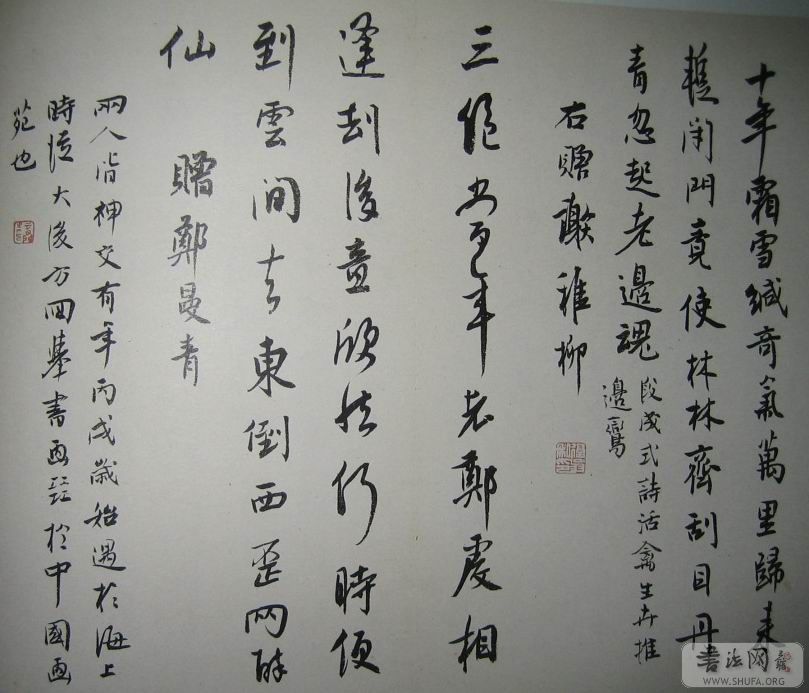 十年霜雪緘奇氣萬里歸來
閉門竟使林林齊刮目丹
青忽起老邊魂
段成式詩活禽生卉推
邊鸞
右贈謝稚柳
三絕 百年 老鄭虔相
逢劫後意欣然何時便
到雲間去東倒西歪兩醉
仙
贈鄭曼青
兩人皆神交有年丙戌歲始遇於海上
時從大後方回舉書画展於中國画
苑也
書法网
WWW.SHUFA.ORG